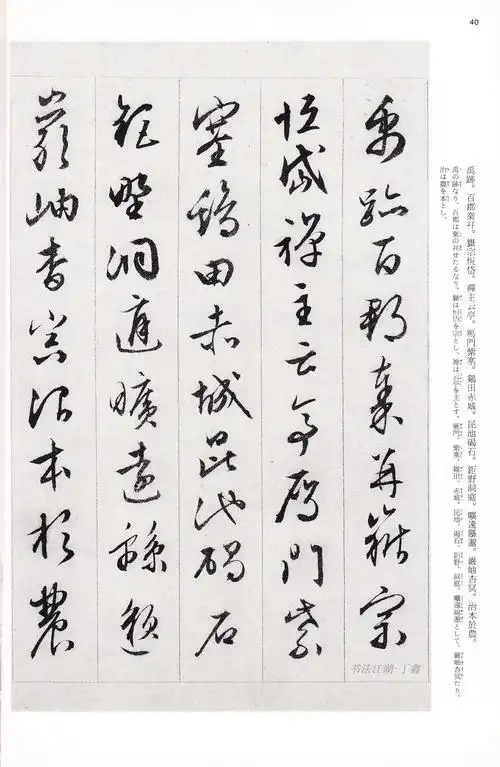 40
禹跡百郡秦并嶽宗
恒岱禪主云亭雁門紫
塞鷄田赤城昆池碣石
鉅野洞庭曠遠緜邈
巖岫杳冥治本於農
禹跡。百郡秦并。嶽宗恆岱。禪主云亭。鴈門紫塞。鷄田赤城。昆池碣石。鉅野洞庭。曠遠緜邈。巖岫杳冥。治本於農。
禹の跡なり、百郡は秦の并せたるなり。嶽は恒岱を宗とし、禅は云亭を主とす。雁門、紫塞、鶏田、赤城。昆池、碣石。鉅野、洞庭。曠遠緜邈として、巖岫杳冥たり。
治は農を本とし、
书法江湖-丁鑫